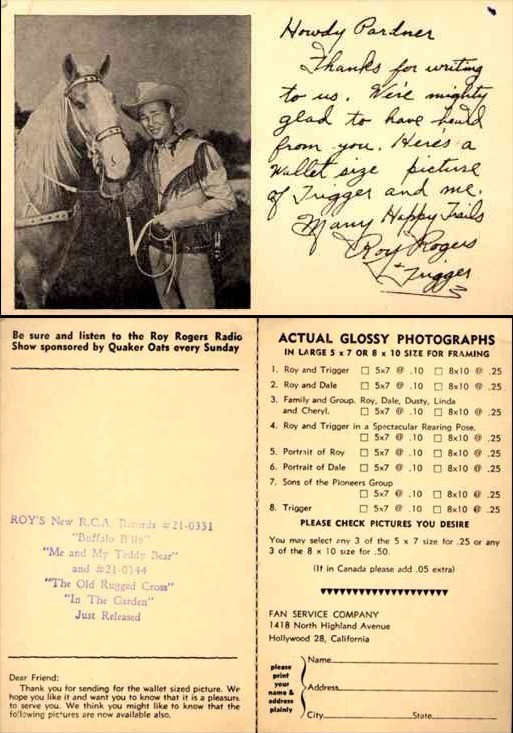 Howdy Pardner
Thanks for writing
to us. We're mighty
glad to have heard
from you. Here's a
wallet size picture
of Trigger and me.
Many Happy Trails
Roy Rogers
+ Trigger
Be sure and listen to the Roy Rogers Radio
Show sponsored by Quaker Oats every Sunday
ROY'S New R.C.A. Records #21-0331
"Buffalo Billy"
"Me and My Teddy Bear"
and #21-0344
"The Old Rugged Cross"
"In The Garden"
Just Released
Dear Friend:
Thank you for sending for the wallet sized picture. We
hope you like it and want you to know that it is a pleasure
to serve you. We think you might like to know that the
following pictures are now available also.
ACTUAL GLOSSY PHOTOGRAPHS
IN LARGE 5 x 7 OR 8 x 10 SIZE FOR FRAMING
1. Roy and Trigger □ 5x7 @ .10 □ 8x10 @ .25
2. Roy and Dale □ 5x7 @ .10 □ 8x10 @ .25
3. Family and Group. Roy, Dale, Dusty, Linda
and Cheryl. □ 5x7 @ .10 □ 8x10 @ .25
4. Roy and Trigger in a Spectacular Rearing Pose.
□ 5x7 @ .10 □ 8x10 @ .25
5. Portrait of Roy □ 5x7 @ .10 □ 8x10 @ .25
6. Portrait of Dale □ 5x7 @ .10 □ 8x10 @ .25
7. Sons of the Pioneers Group
□ 5x7 @ .10 □ 8x10 @ .25
8. Trigger □ 5x7 @ .10 □ 8x10 @ .25
PLEASE CHECK PICTURES YOU DESIRE
You may select any 3 of the 5 x 7 size for .25 or any
3 of the 8 x 10 size for .50.
(If in Canada please add .05 extra)
FAN SERVICE COMPANY
1418 North Highland Avenue
Hollywood 28, California
please
print
your
name &
address
plainly
Name
Address
City State